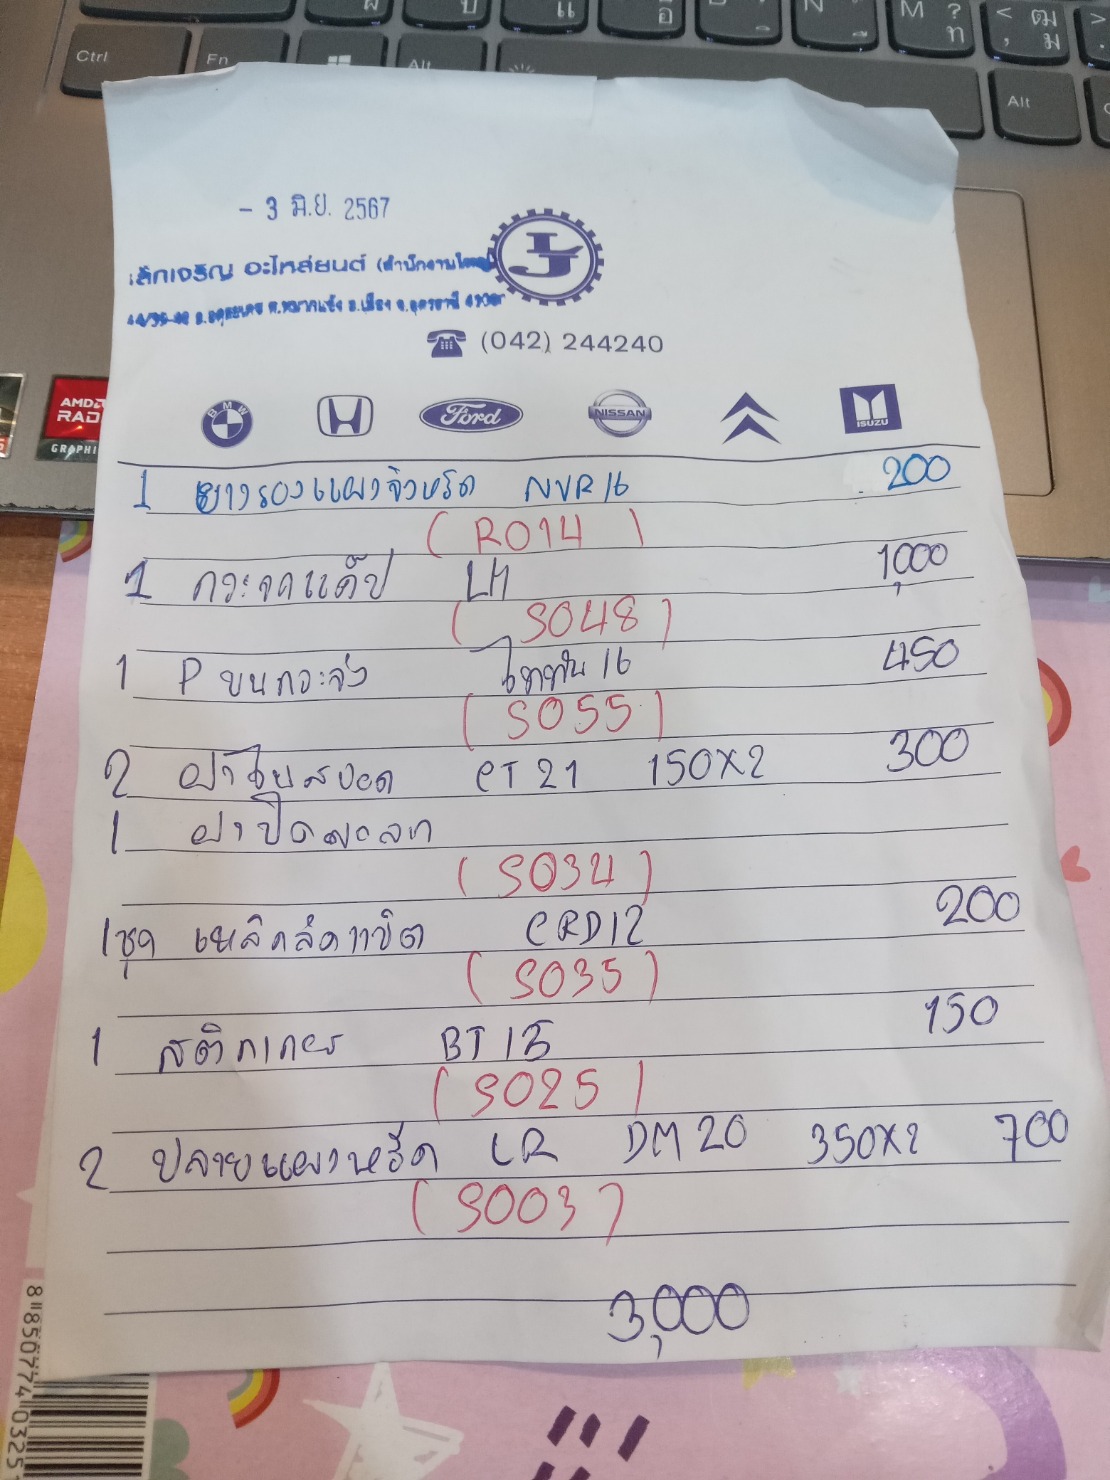 Ctrl
Fn
Alt
M ? ท
< ฒ , ม
Alt
AMD
RAD
GRAPHI
- 3 มิ.ย. 2567
เล็กเจริญ อะไหล่ยนต์ (สำนักงานใหญ่)
(042) 244240
BMW
Ford
NISSAN
ISUZU
1 ยางรองแผงจิ้งหรีด NVR16 200
(R014)
1 กระจกแค๊ป LH 1,000
(S048)
1 P ขนกระจัง ไททัน 16 450
(S055)
2 ฝาไฟสปอต CT21 150x2 300
1 ฝาปิด
(S034)
1ชุด เหล็ก CRD12 200
(S035)
1 สติกเกอร์ BT15 150
(S025)
2 ปลายแผงหรีด LR DM20 350x2 700
(S003)
3,000
8 850774 0325